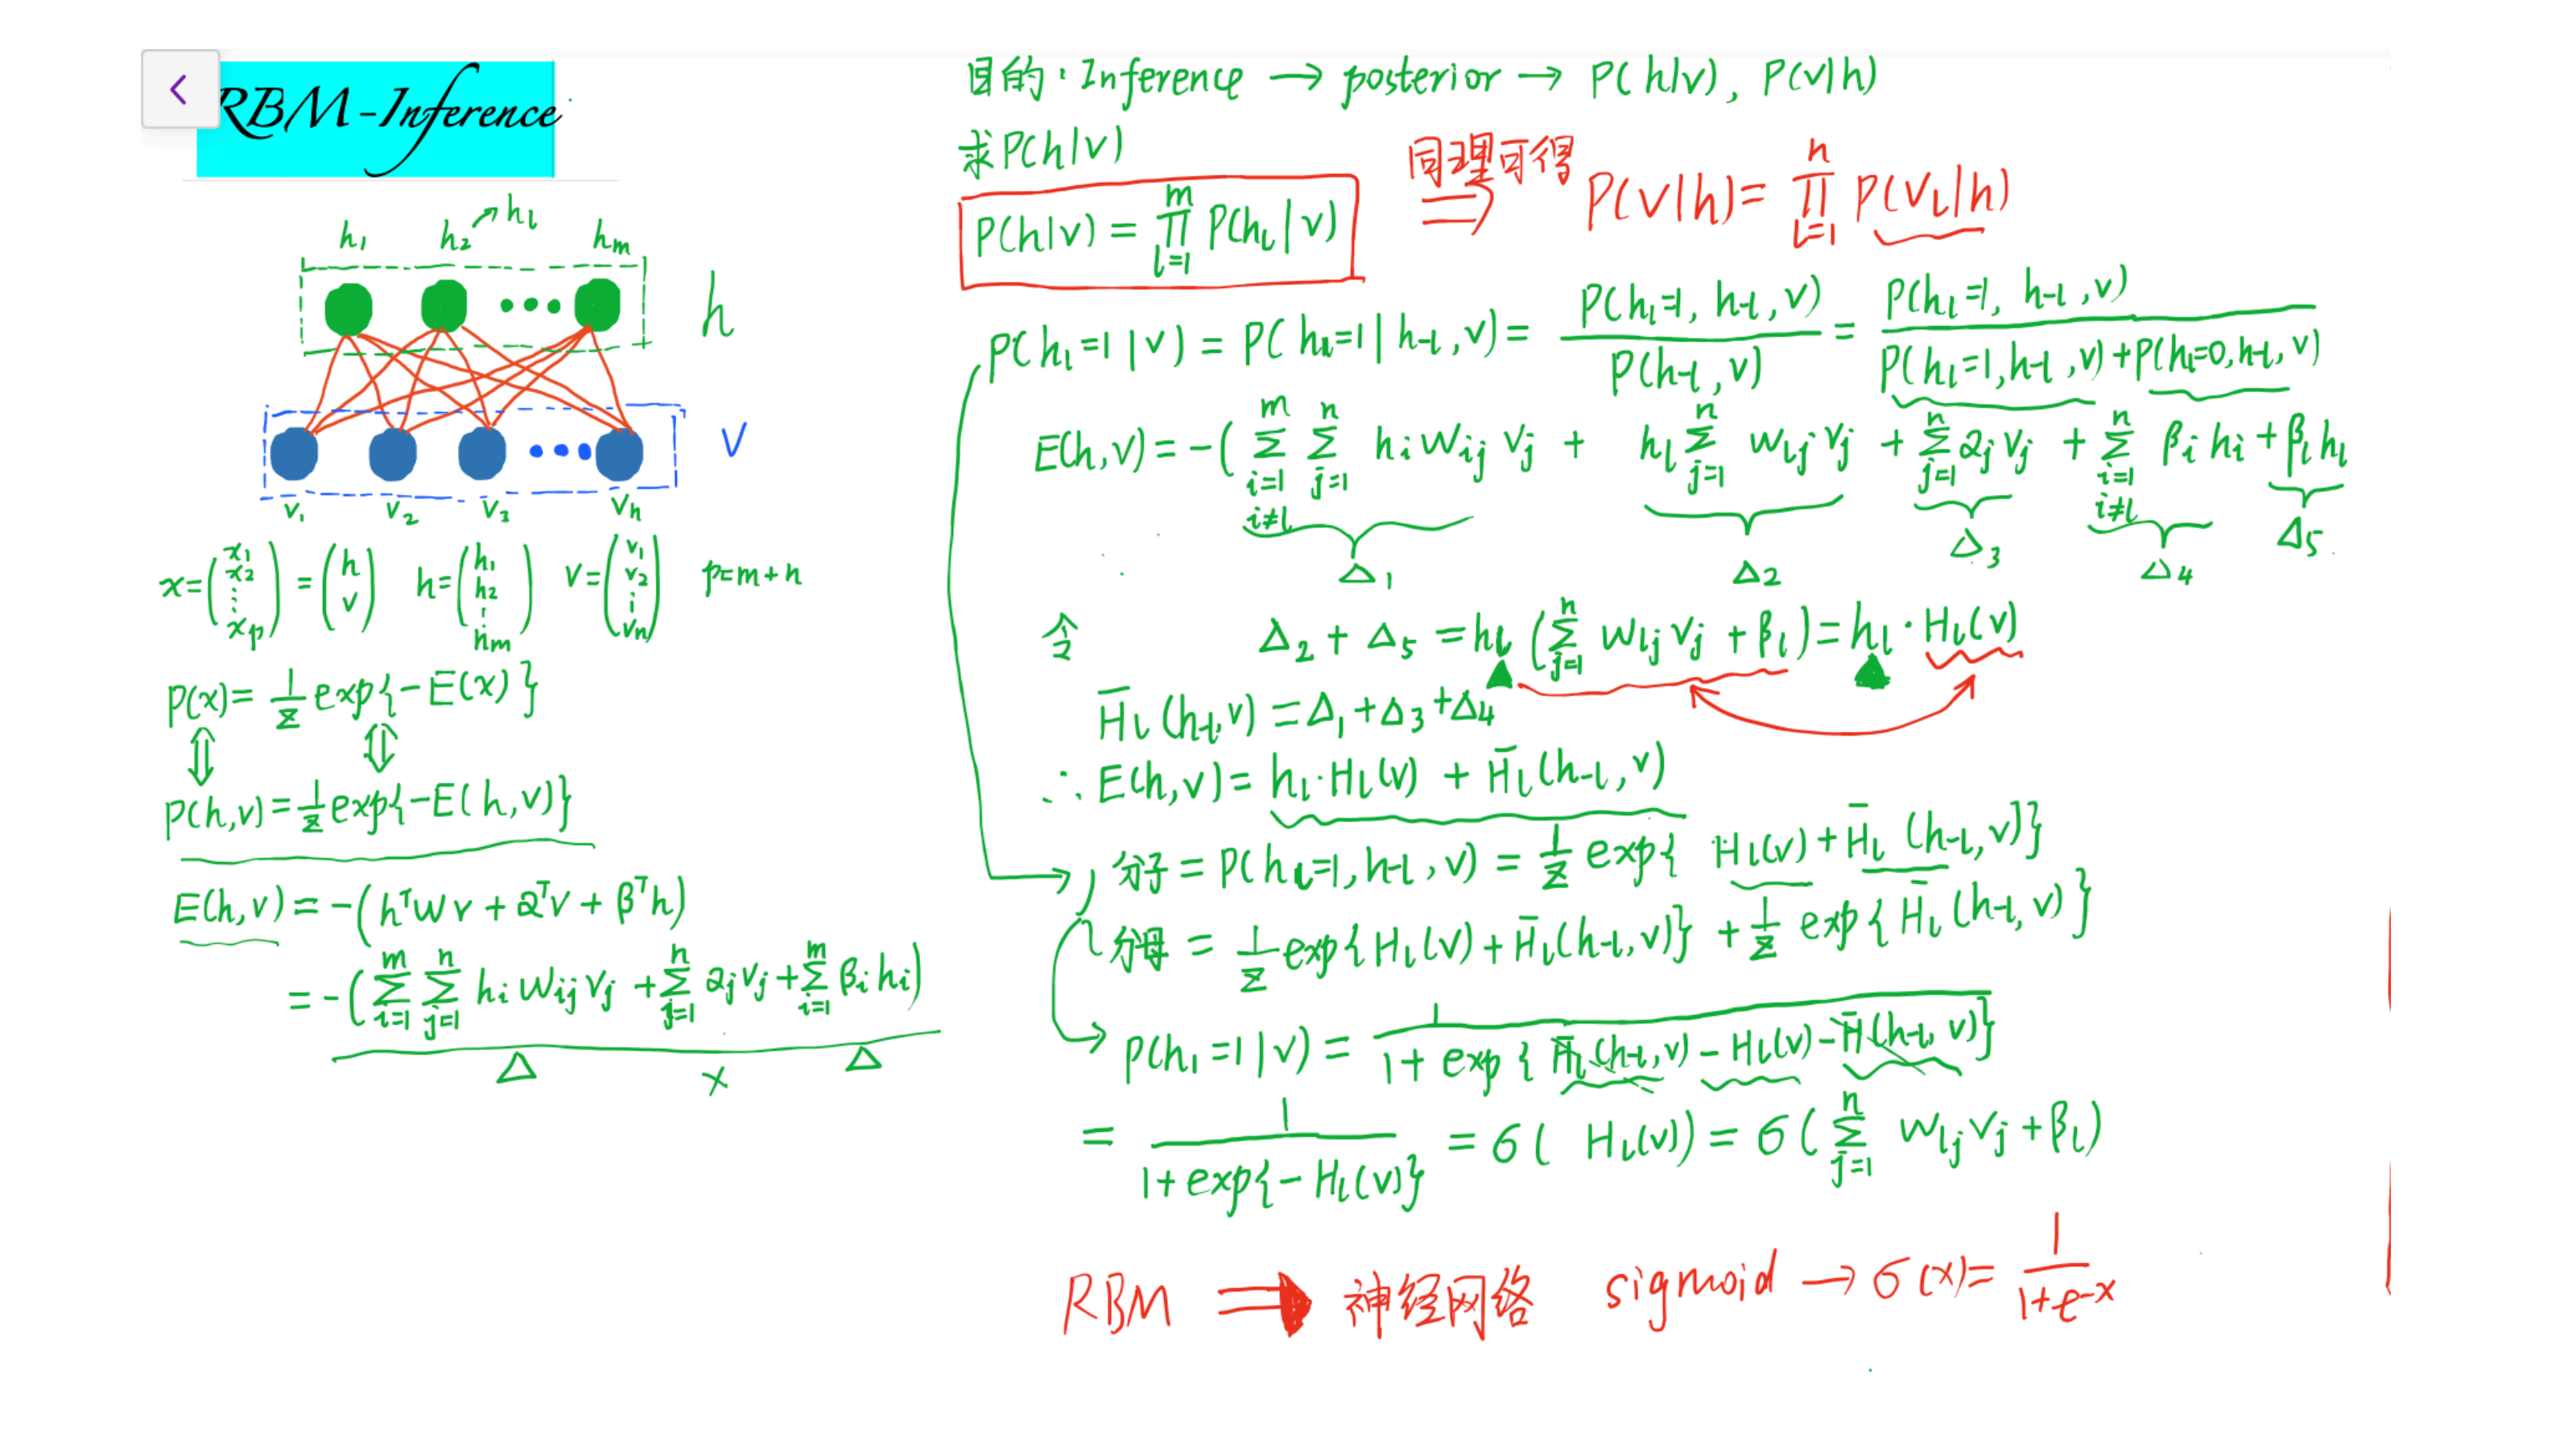 RBM-Inference
h₁ h₂ → hₗ hₘ
h
v
v₁ v₂ v₃ vₙ
x = (x₁ x₂ ⋮ xₚ) = (h v) h = (h₁ h₂ ⋮ hₘ) v = (v₁ v₂ ⋮ vₙ) p=m+n
P(x) = 1/Z exp{-E(x)}
P(h,v) = 1/Z exp{-E(h,v)}
E(h,v) = -(hᵀwv + αᵀv + βᵀh)
= -(∑_{i=1}^{m} ∑_{j=1}^{n} hᵢ wᵢⱼ vⱼ + ∑_{j=1}^{n} αⱼvⱼ + ∑_{i=1}^{m} βᵢhᵢ)
Δ × Δ
目的: Inference → posterior → P(h|v), P(v|h)
求P(h|v)
P(h|v) = ∏_{l=1}^{m} P(hₗ|v) 同理可得 ⇒ P(v|h) = ∏_{l=1}^{n} P(vₗ|h)
P(hₗ=1|v) = P(hₗ=1|h₋ₗ,v) = P(hₗ=1, h₋ₗ, v) / P(h₋ₗ, v) = P(hₗ=1, h₋ₗ, v) / P(hₗ=1, h₋ₗ, v)+P(hₗ=0, h₋ₗ, v)
E(h,v) = -(∑_{i=1, i≠l}^{m} ∑_{j=1}^{n} hᵢ wᵢⱼ vⱼ + hₗ ∑_{j=1}^{n} wₗⱼ vⱼ + ∑_{j=1}^{n} αⱼvⱼ + ∑_{i=1, i≠l}^{n} βᵢ hᵢ + βₗhₗ
Δ₁ Δ₂ Δ₃ Δ₄ Δ₅
令 Δ₂ + Δ₅ = hₗ (∑_{j=1}^{n} wₗⱼvⱼ + βₗ) = hₗ·Hₗ(v)
H̄ₗ(h₋ₗ,v) = Δ₁+Δ₃+Δ₄
∴ E(h,v) = hₗ·Hₗ(v) + H̄ₗ(h₋ₗ, v)
分子 = P(hₗ=1, h₋ₗ, v) = 1/Z exp{ Hₗ(v)+H̄ₗ(h₋ₗ,v)}
分母 = 1/Z exp{Hₗ(v)+H̄ₗ(h₋ₗ,v)} + 1/Z exp{H̄ₗ(h₋ₗ,v)}
P(hₗ=1|v) = 1 / 1+exp{H̄ₗ(h₋ₗ,v) - Hₗ(v) - H̄(h₋ₗ,v)}
= 1 / 1+exp{-Hₗ(v)} = σ( Hₗ(v)) = σ(∑_{j=1}^{n} wₗⱼvⱼ+βₗ)
RBM ⇒ 神经网络 sigmoid → σ(x) = 1 / 1+e^{-x}